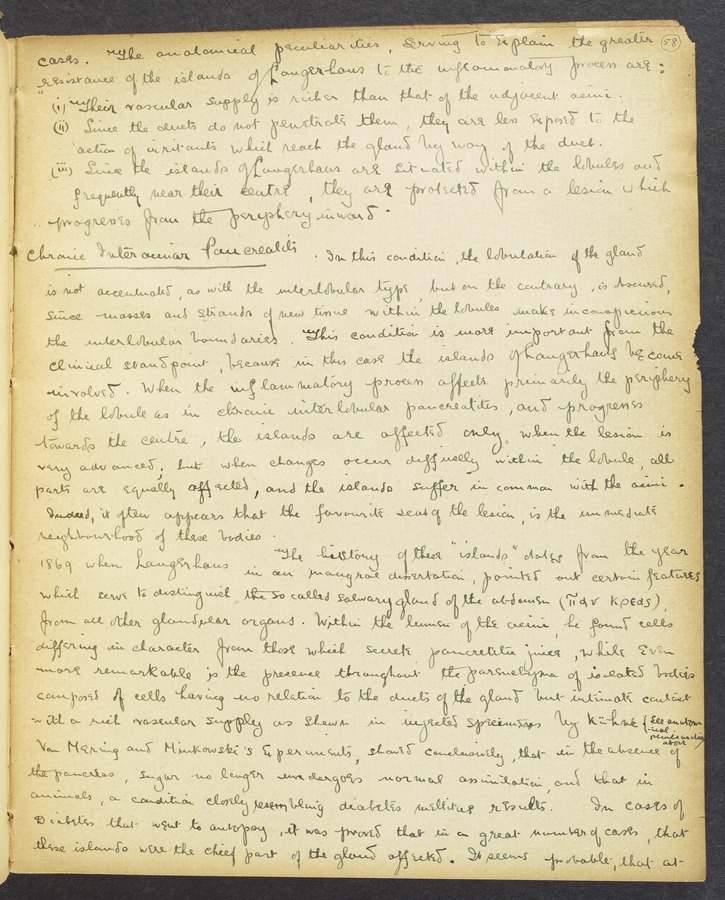 58
cases. The anatomical peculiarities, serving to explain the greater
resistance of the islands of Langerhans to the inflammatory process are:
"(i) Their vascular supply is richer than that of the adjacent acini.
(ii) Since the ducts do not penetrate them, they are less exposed to the
action of irritants which reach the gland by way of the duct.
(iii) Since the islands of Langerhans are situated within the lobules and
frequently near their centre, they are protected from a lesion which
progresses from the periphery inward."
Chronic Interacinar Pancreatitis. In this condition, the lobulation of the gland
is not accentuated, as with the interlobular type, but on the contrary, is obscured,
since masses and strands of new tissue within the lobules make inconspicuous
the interlobular boundaries. This condition is more important from the
clinical standpoint, because in this case the islands of Langerhans become
involved. When the inflammatory process affects primarily the periphery
of the lobule as in chronic interlobular pancreatites, and progresses
towards the centre, the islands are affected only when the lesion is
very advanced; but when changes occur diffusely within the lobule, all
parts are equally affected, and the islands suffer in common with the acini.
Indeed, it often appears that the favourite seat of the lesion, is the immediate
neighbourhood of these bodies.
The history of these "islands" dates from the year
1869 when Langerhans in an inaugral dissertation, pointed out certain features
which serve to distinguish the so called salivary gland of the abdomen (Παν κρεας),
from all other glandular organs. Within the lumen of the acini, he found cells
differing in character from those which secrete pancreatic juice, while even
more remarkable is the presence throughout the parenchyma of isolated bodies
composed of cells having no relation to the ducts of the gland but intimate contact
with a rich vascular supply as shewn in injected specimens by Kühne (See anatom-
ical
above
Von Mering and Minkowski's Experiments, shewed conclusively, that in the absence of
the pancreas, sugar no longer undergoes normal assimilation, and that in
animals, a condition closely resembling diabetes mellitus results. In cases of
Diabetes that went to autopsy, it was proved that in a great number of cases, that
these islands were the chief part of the gland affected. It seems probable, that at-